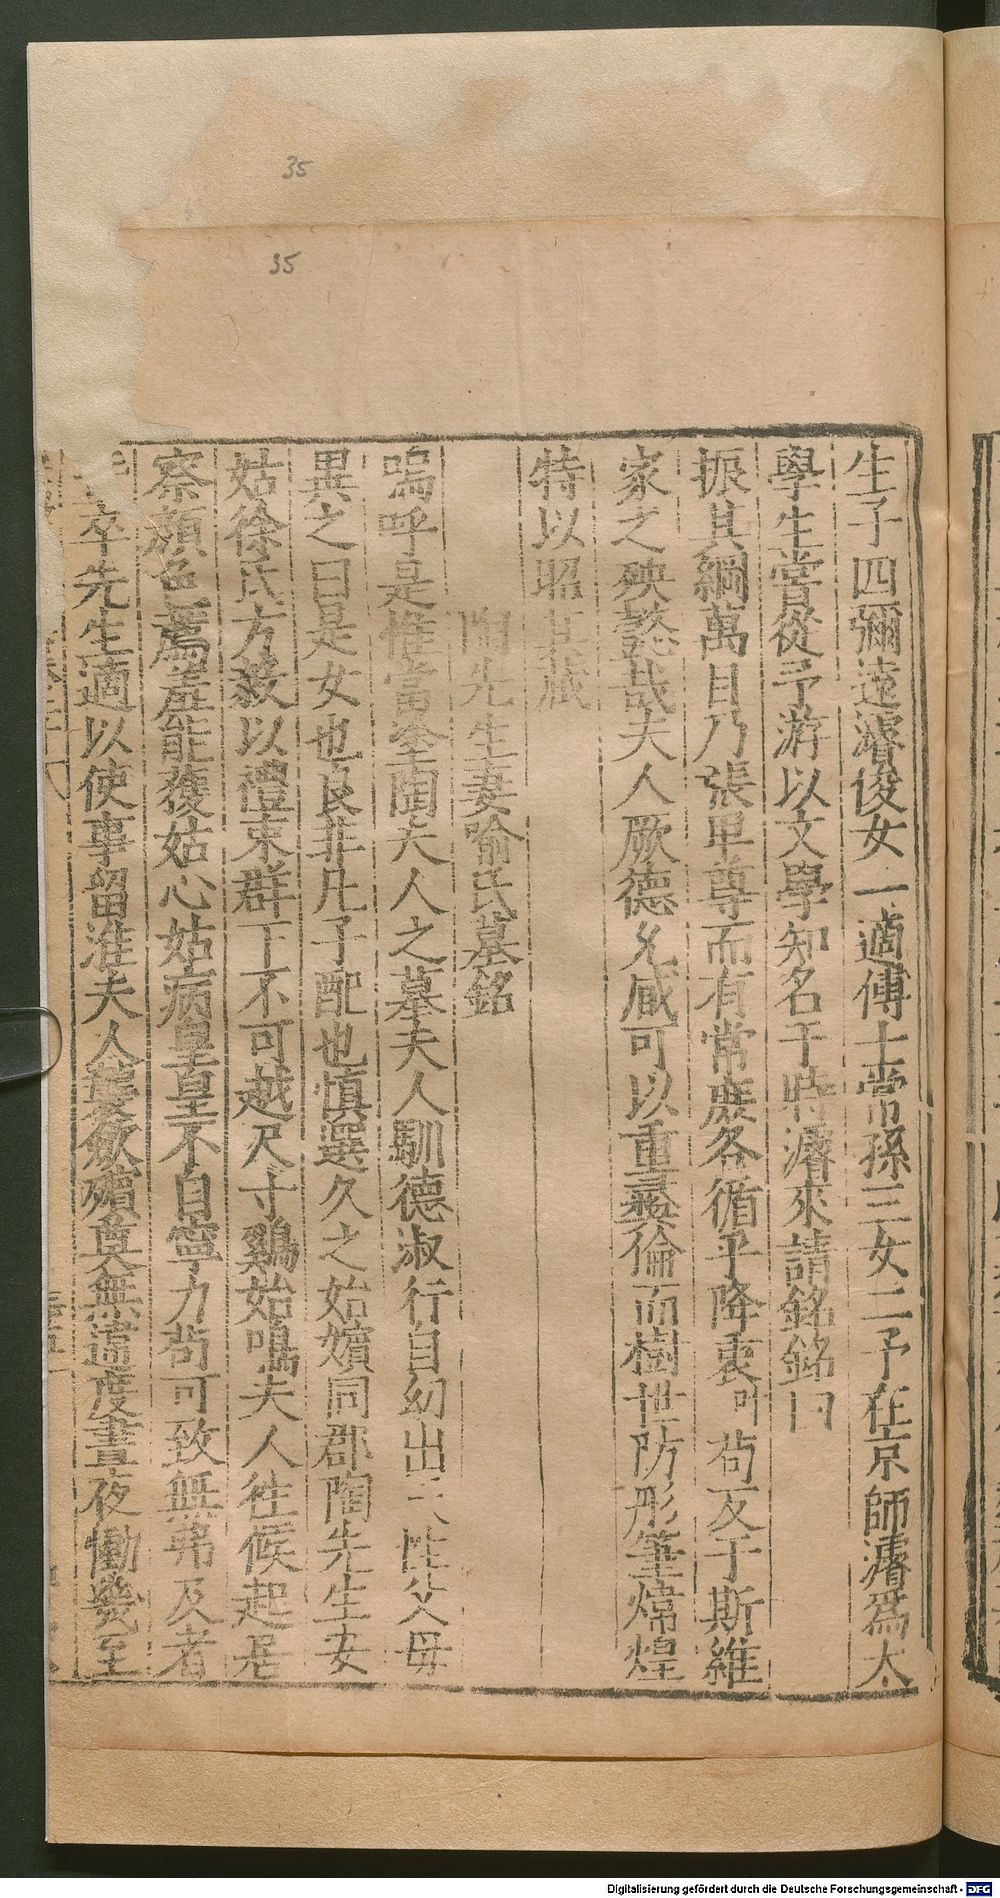 35
35
生子四彌遠濬俊女一適傅士常孫三女二予在京師濬爲太
學生嘗從予游以文學知名于時濬來請銘銘曰
振其綱萬目乃張卑尊而有常庶各循乎降衷 苟反于斯維
家之殃懿哉夫人厥德允臧可以重彝倫而樹世防彤筆煒煌
特以昭其藏
陶先生妻喻氏墓銘
嗚呼是惟當塗陶夫人之墓夫人馴德淑行自幼出 性父母
異之曰是女也良非凡子配也慎選久之始嬪同郡陶先生安
姑徐氏方嚴以禮束群下不可越尺寸鷄始鳴夫人徃候起居
察顏色薦羞能獲姑心姑病 亟不自寧力苟可致無弗及者
卒先生適以使事留淮夫人 歛殯奠無違度晝夜慟幾至
Digitalisierung gefördert durch die Deutsche Forschungsgemeinschaft - DFG